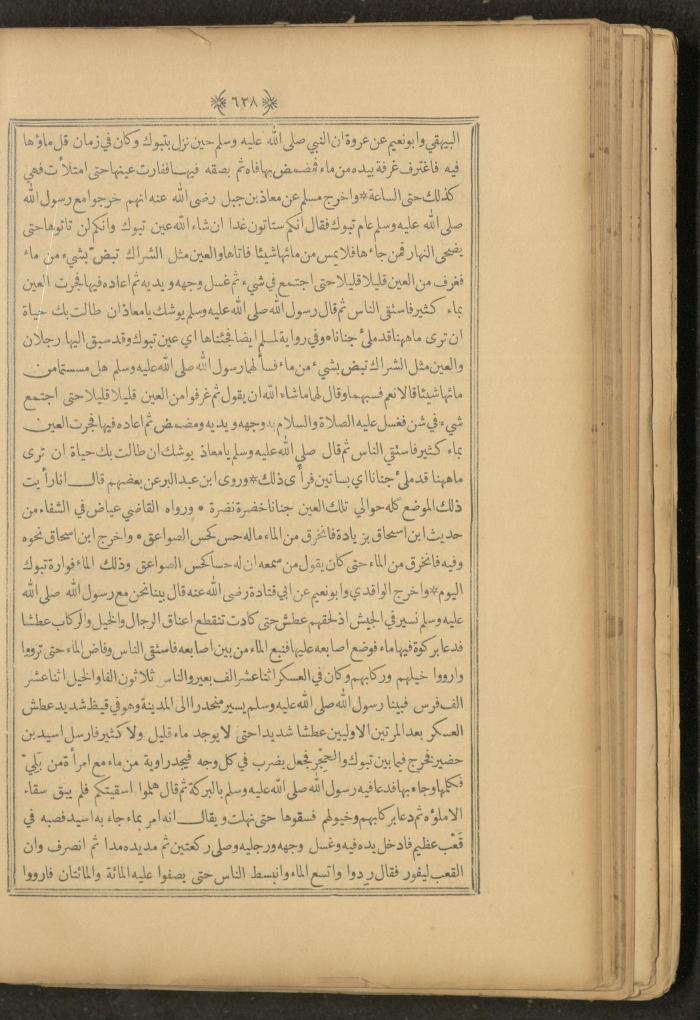 ٦٢٨
البيهقي وابونعيم عن عروة ان النبي صلى الله عليه وسلم حين نزل بتبوك وكان في زمان قل ماؤها
فيه فاغترف غرفة بيده من ماء فمضمض بها فاه ثم بصقه فيها ففارت عينها حتى امتلأت فهي
كذلك حتى الساعة * واخرج مسلم عن معاذ بن جبل رضى الله عنه انهم خرجوا مع رسول الله
صلى الله عليه وسلم عام تبوك فقال انكم ستاتون غدا ان شاء الله عين تبوك وانكم لن تاتوها حتى
يضحى النهار فمن جاءها فلا يمس من مائها شيئا فاتاها والعين مثل الشراك تبض بشيء من ماء
فغرف من العين قليلا قليلا حتى اجتمع في شيء ثم غسل وجهه ويديه ثم اعاده فيها فجرت العين
بماء كثير فاستقى الناس ثم قال رسول الله صلى الله عليه وسلم يوشك يا معاذ ان طالت بك حياة
ان ترى ماههنا قد ملئ جنانا * وفي رواية لمسلم ايضا فجئناها اي عين تبوك وقد سبق اليها رجلان
والعين مثل الشراك تبض بشيء من ماء فسألهما رسول الله صلى الله عليه وسلم هل مسستما من
مائها شيئا قالا نعم فسبهما وقال لهما ماشاء الله ان يقول ثم غرفوا من العين قليلا قليلا حتى اجتمع
شيء في شن فغسل عليه الصلاة والسلام به وجهه ويديه ومضمض ثم اعاده فيها فجرت العين
بماء كثير فاستقى الناس ثم قال صلى الله عليه وسلم يا معاذ يوشك ان طالت بك حياة ان ترى
ماههنا قد ملئ جنانا اي بساتين فرأى ذلك * وروى ابن عبد البر عن بعضهم قال انا رأيت
ذلك الموضع كله حوالي تلك العين جنانا خضرة نضرة * ورواه القاضي عياض في الشفاء من
حديث ابن اسحاق بزيادة فانخرق من الماء ماله حس كحس الصواعق * واخرج ابن اسحاق نحوه
وفيه فانخرق من الماء حتى كان يقول من سمعه ان له حسا كحس الصواعق وذلك الماء فوارة تبوك
اليوم * واخرج الواقدي وابونعيم عن ابي قتادة رضى الله عنه قال بينا نحن مع رسول الله صلى الله
عليه وسلم نسير في الجيش اذ لحقهم عطش حتى كادت تنقطع اعناق الرجال والخيل والركاب عطشا
فدعا بركوة فيها ماء فوضع اصابعه عليها فنبع الماء من بين اصابعه فاستقى الناس وفاض الماء حتى ترووا
وارووا خيلهم وركابهم وكان في العسكر اثنا عشر الف بعير والناس ثلاثون الفا والخيل اثنا عشر
الف فرس فبينا رسول الله صلى الله عليه وسلم يسير منحدرا الى المدينة وهو في قيظ شديد عطش
العسكر بعد المرتين الاوليين عطشا شديدا حتى لا يوجد ماء قليل ولا كثير فارسل اسيد بن
حضير فخرج فيما بين تبوك والحجر فجعل يضرب في كل وجه فيجد راوية من ماء مع امرأة من بَلِيّ
فكلمها وجاء بها فدعا فيه رسول الله صلى الله عليه وسلم بالبركة ثم قال هلموا اسقيتكم فلم يبق سقاء
الا ملؤه ثم دعا بركابهم وخيولهم فسقوها حتى نهلت ويقال انه امر بماء جاء به اسيد فصبه في
قَعْب عظيم فادخل يده فيه وغسل وجهه ورجليه وصلى ركعتين ثم مد يده مدا ثم انصرف وان
القعب ليفور فقال ردوا واتسع الماء وانبسط الناس حتى يصفوا عليه المائة والمائتان فارووا